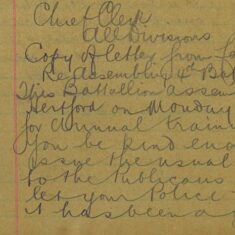 Chief Clerk
All Divisions
Copy of letter from
Re Assembling 4th
This Battallion assem
Hertford on Monday
for Annual train
you be kind eno
issue the usual
to the Publicans
let your Police
it has been a